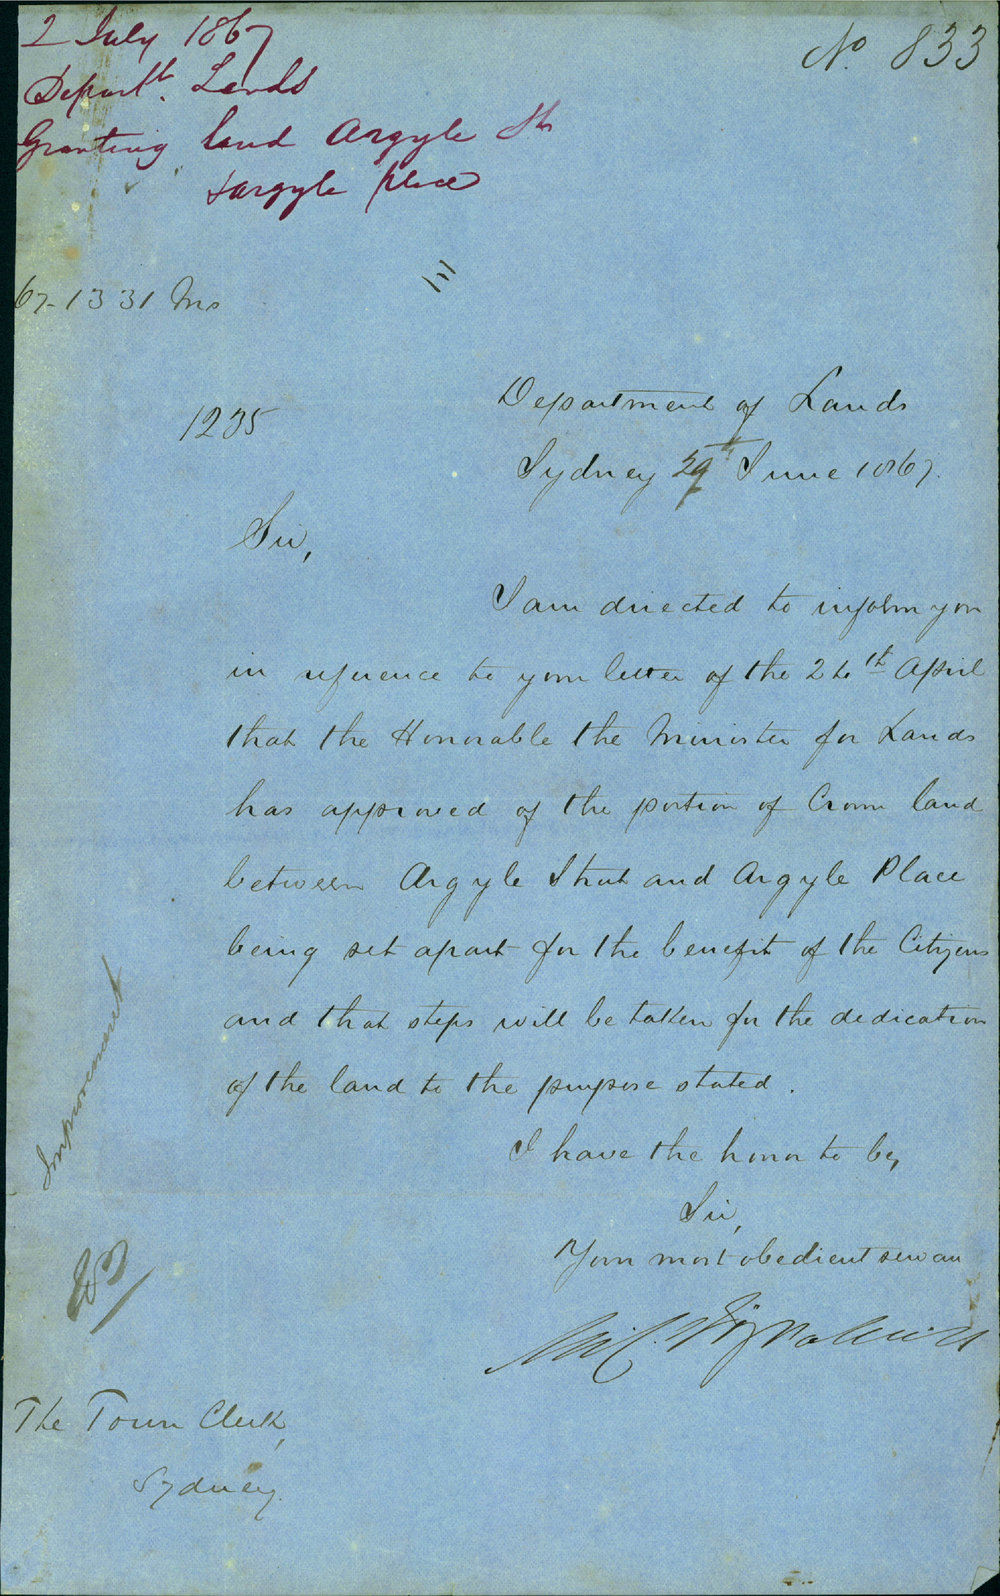 2 July 1867
Departt. Lands
Granting land Argyle St
& Argyle place
No 833
67-1331 Ms
1235
Department of Lands
Sydney 29th June 1867.
Sir,
I am directed to inform you
in reference to your letter of the 26th April
that the Honorable the Minister for Lands
has approved of the portion of Crown land
between Argyle Street and Argyle Place
being set apart for the benefit of the Citizens
and that steps will be taken for the dedication
of the land to the purpose stated.
I have the honor to be,
Sir,
Your most obedient servan
Improvement
The Town Clerk,
Sydney.